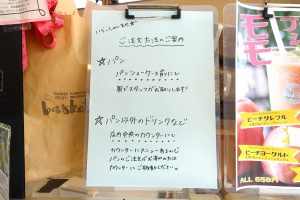 いらっしゃいませ★
ご注文方法のご案内
☆パン
パンショーケース前にて
製パンスタッフがお取りします!
☆パン以外のドリンクなど
店内中央のカウンターにて
カウンターにメニューあるので
パンのご注文がお済みの方は
カウンターにご移動ください。
baske
モモ
ピーチクレフル
ピーチヨーグルト
ALL 650円